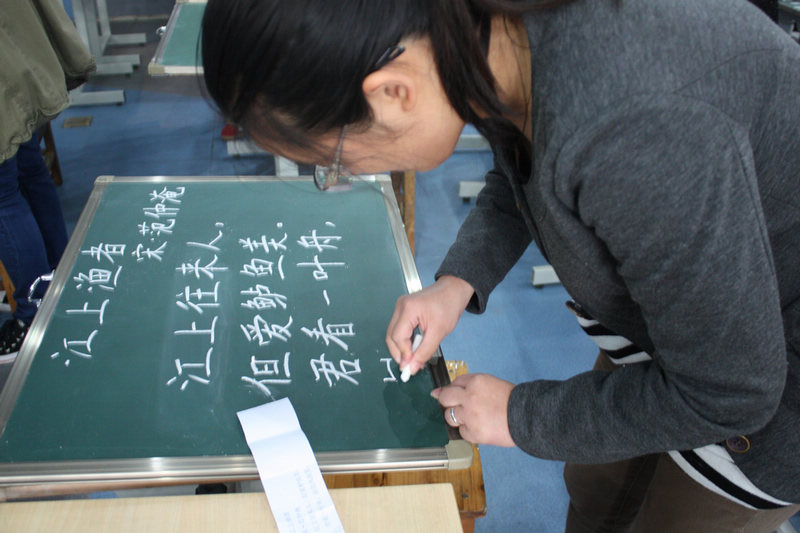 江上渔者
宋·范仲淹
江上往来人,
但爱鲈鱼美。
君看一叶舟,